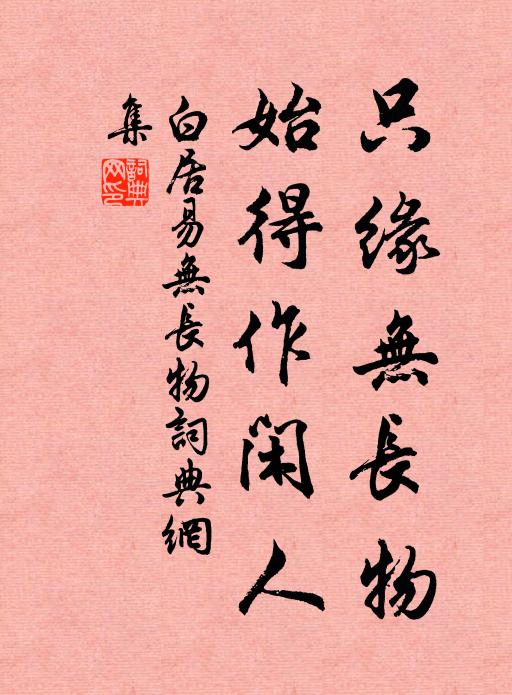 只緣無長物
始得作閑人
白居易無長物詞典網
集
詞典網印